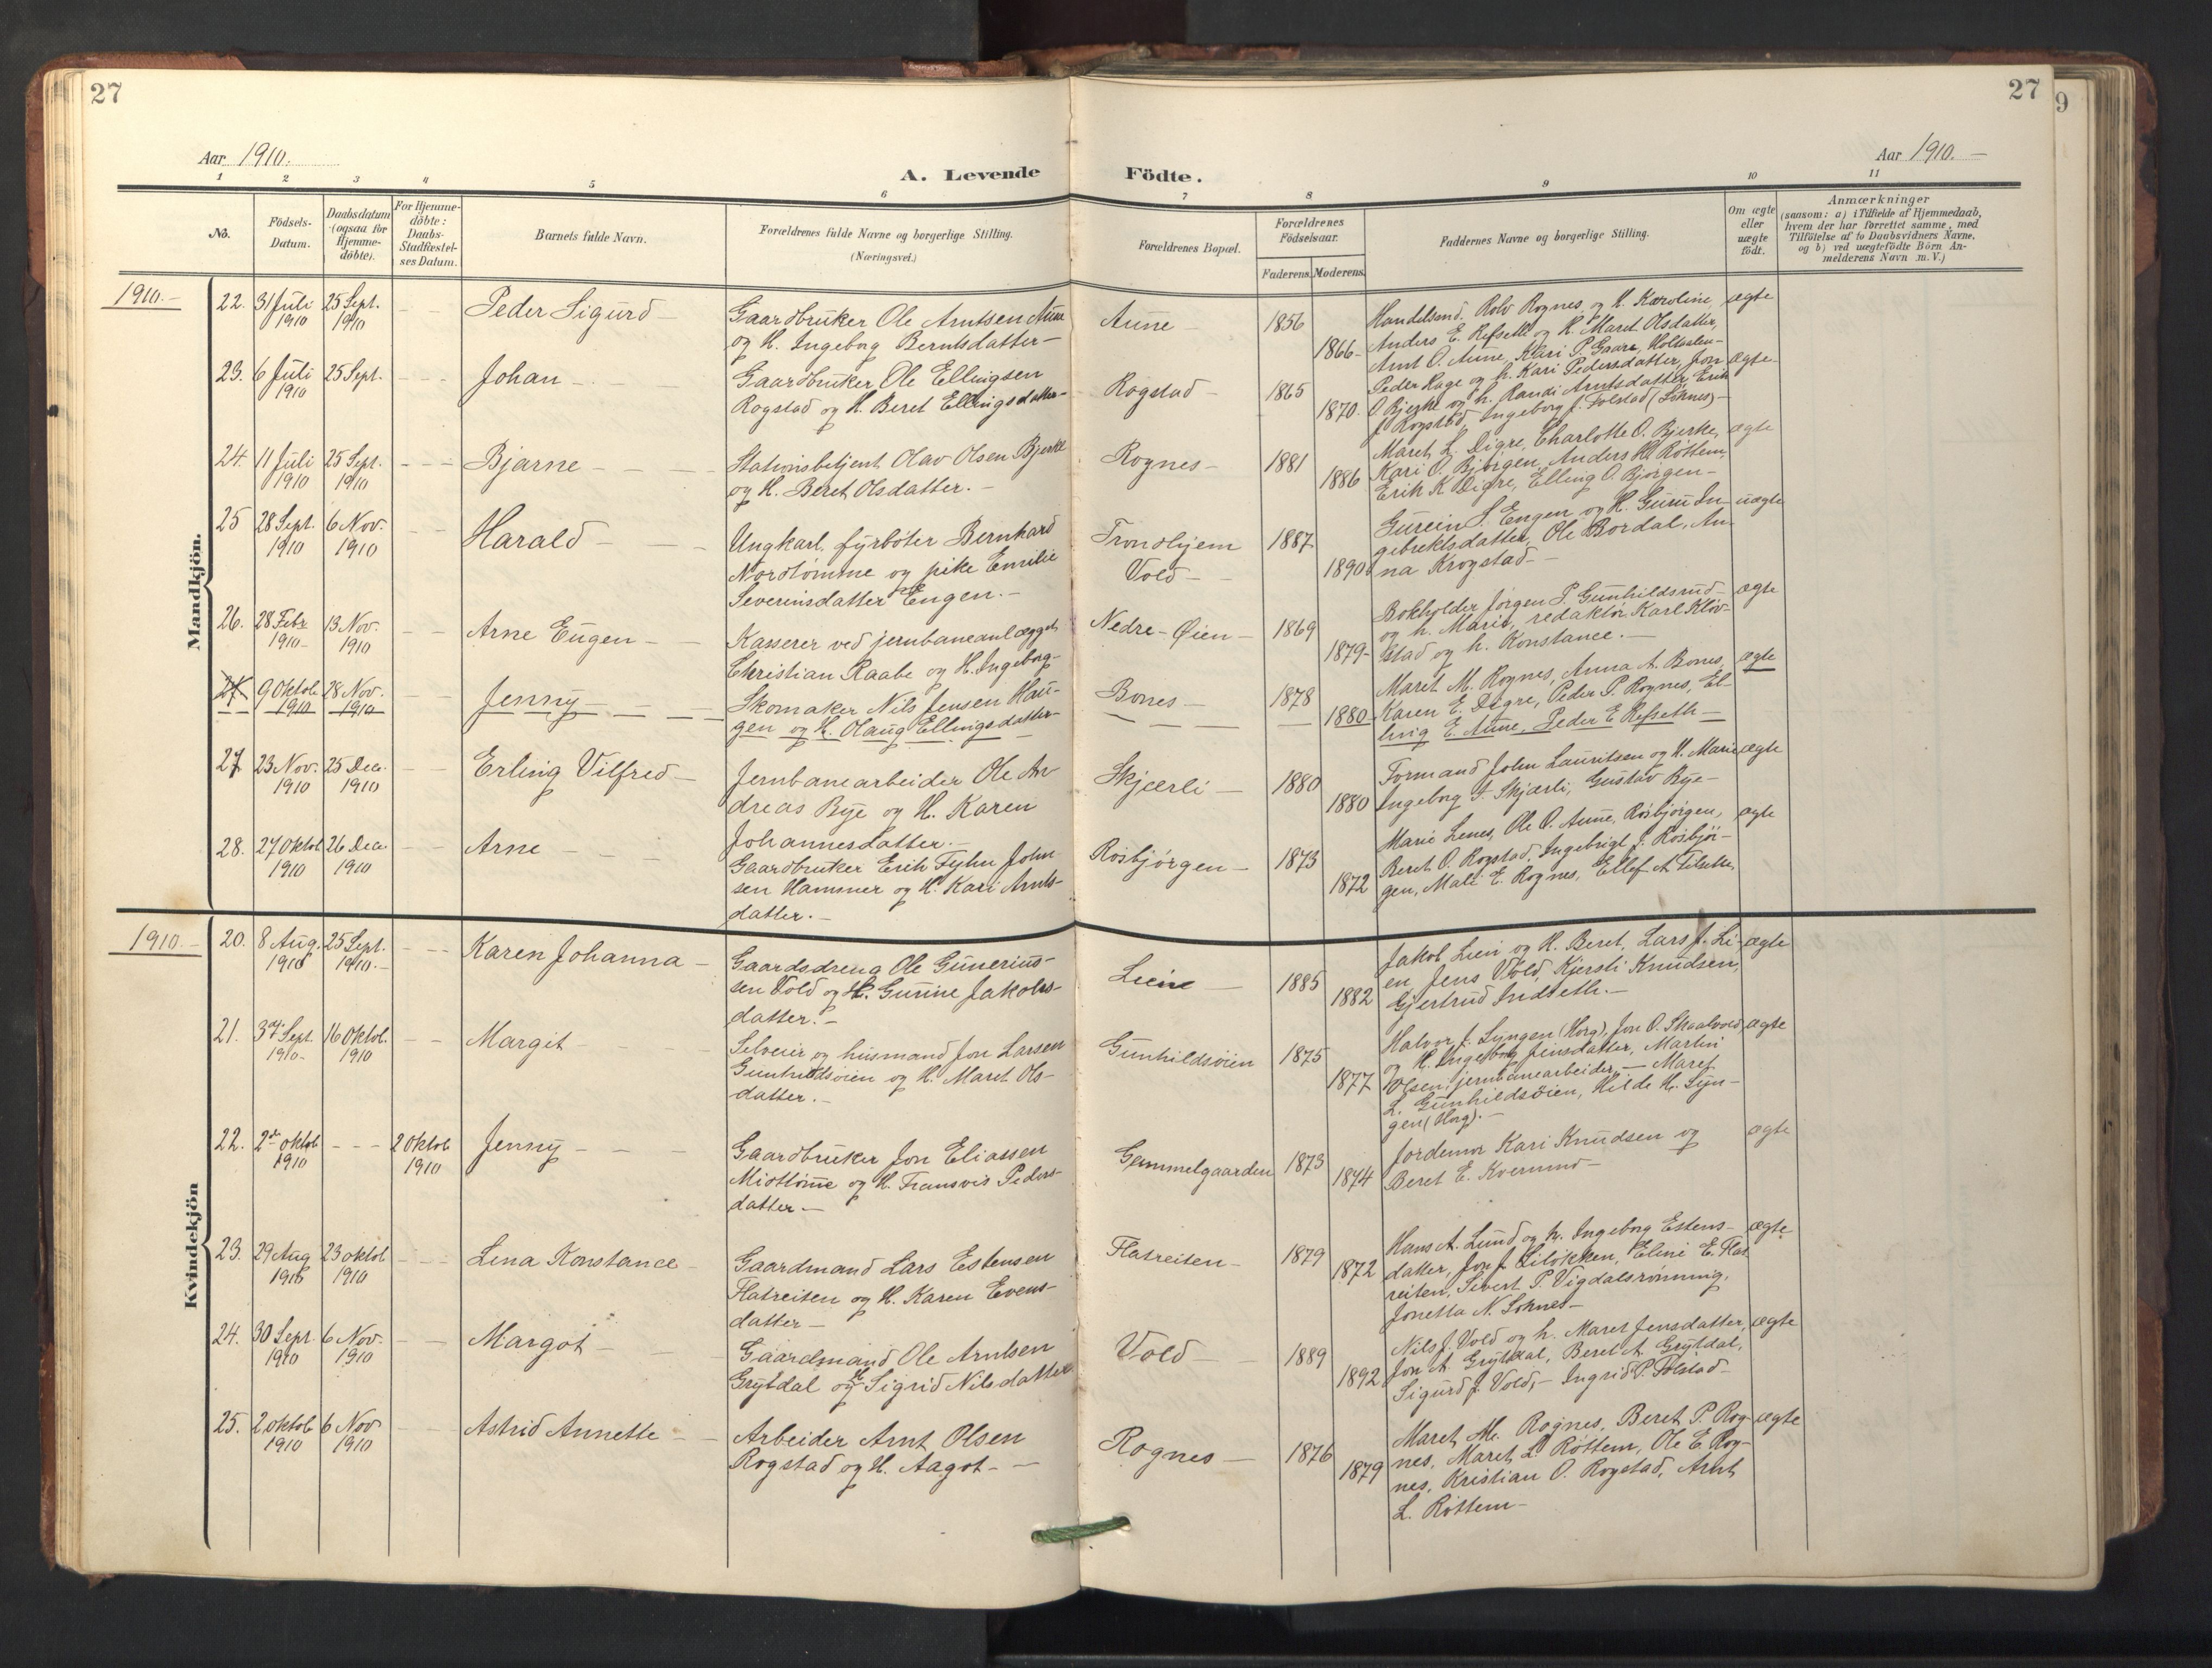 27
27
9
Aar 1910.
Aar 1910.—
A. Levende Födte.
1 2 3 4 5 6 7 8 9 10 11
No.
Födsels-
Datum.
Daabsdatum
(ogsaa for
Hjemme-
döbte).
For Hjemme-
döbte:
Daabs-
Stadfæstel-
ses Datum.
Barnets fulde Navn.
Forældrenes fulde Navne og borgerlige Stilling.
(Næringsvei.)
Forældrenes Bopæl.
Forældrenes
Födselsaar.
Faderens. Moderens.
Faddernes Navne og borgerlige Stilling.
Om ægte
eller
uægte
födt.
Anmærkninger
(saasom: a) i Tilfælde af Hjemmedaab,
hvem der har forrettet samme, med
Tilföielse af to Daabsvidners Navne,
og b) ved uægtefödte Börn An-
melderens Navn m. V.)
Mandkjön.
1910.—
22. 31 Juli 1910 25 Sept. 1910 — — Peder Sigurd —
Gaardbruker Ole Arntsen Aune
og H. Ingeborg Berntsdatter —
Aune — 1856 1866 —
Handelsmd. Rolv Rognes og H. Karoline,
Anders E. Refseth og H. Maret Olsdatter,
Arnt O. Aune, Kari P. Gaare, Holtaalen —
ægte
23. 6 Juli 1910 25 Sept. — — Johan — —
Gaardbruker Ole Ellingsen
Rogstad og H. Beret Ellingsdatter —
Rogstad — 1865 1870.
Peder Hage og h. Kari Pedersdatter, Jon
O Bjerke og h. Randi Arntsdatter, Erik
J Rogstad, Ingeborg J. Folstad (Soknes) —
ægte —
24. 11 Juli 1910 25 Sept. 1910 — — Bjarne — — —
Stationsbetjent Olav Olsen Bjerke
og H. Beret Olsdatter. —
Rognes — 1881 1886
Maret L. Digre, Charlotte O. Bjerke,
Kari O. Bjørgen, Anders H Røttem,
Erik K Digre, Elling O. Bjørgen —
ægte
25 28 Sept. 1910 6 Nov. 1910 — — Harald — — —
Ungkarl, fyrbøter Bernhard
Nordtømme og pike Emilie
Severinsdatter Engen. —
Trondhjem
Vold —
1887 1890
S. Engen og H. Guru In-
gebrektsdatter, Ole Bordal, An-
na Krogstad —
uægte
26. 28 Febr 1910 — 13 Nov. 1910 — — Arne Eugen —
Kasserer ved jernbaneanlægget
Christian Raabe og H. Ingeborg —
Nedre-Øien — 1869 1879 —
Bokholder Jørgen P. Gunhildsrud —
og h. Marie, redaktør Karl Kløv-
stad og h. Konstance. —
ægte
27 9 Oktob 1910 28 Nov. 1910 Jenny — — —
Skomaker Nils Jensen Hau-
gen og H. Olaug Ellingsdatter —
Bones — 1878 1880
Maret M. Rognes, Anna A. Bones,
Karen E. Digre, Peder P. Rognes, El-
E. Aune, Peder E Refseth —
ægte
27 23 Nov. 1910 25 Dec. 1910 — — Erling Vilfred —
Jernbanearbeider Ole An
dreas Bye og H. Karen
Johannesdatter. —
Skjærli — 1880 1880
Formand John Lauritsen og H. Marie
Ingeborg T. Skjærli, Gustav Bye —
ægte
28. 27 Oktob 1910 26 Dec. 1910 — — Arne — — —
Gaardbruker Erik Fyhn John
sen Hammer og H. Kari Arnts-
datter. —
Rosbjørgen — 1873 1872
Marie Lenes, Ole O. Aune, Rosbjørgen,
Beret O. Rogstad, Ingebrigt J. Rosbjør-
gen, Mali E. Rognes, Ellef A Tilseth,
ægte
Kvindekjön
1910 —
20. 8 Aug. 1910 25 Sept. 1910. — — — Karen Johanna —
Gaardsdreng Ole Gunerius-
sen Vold og H. Gurine Jakobs-
datter. —
Leine — 1885 1882
Jakob Lien og H. Beret, Lars J. Li-
en, Jens Vold, Kjersti Knudsen,
Gjertrud Indseth. —
ægte
21. 3dje Sept. 1910 — 16 Oktob. 1910 — — Margit — — —
Selveier og husmand Jon Larsen
Gunhildsøien og H. Maret Ols-
datter. —
Gunhildsøien 1875 1877
Halvor J. Lyngen (Horg), Jon O. Skaalvold,
og H. Ingeborg Jensdatter, Martin
Olsen, jernbanearbeider, — Maret
L. Gunhildsøien, Hilde H. Lyn-
gen (Horg). —
ægte
22. 2den oktob 1910 — — — 2 Oktob 1910 Jenny — — —
Gaardbruker Jon Eliassen
Midttømme og H. Fransvis Peders-
datter —
Gammelgaarden 1873 1874
Jordemor Kari Knudsen og
Beret E. Kvernmo —
ægte
23. 29 Aug 1910 23 oktob 1910 — — Lina Konstance —
Gaardmand Lars Estensen
Flatreiten og H. Karen Evens-
datter —
Flatreiten — 1879 1872
Hans A. Lund og h. Ingeborg Estens-
datter, Jon J. Liløkken, Eline E. Flat
reiten, Sivert P. Vigdalsrønning,
Jonetta N. Soknes —
ægte
24. 30 Sept. 1910 6 Nov. 1910 — — Margot — — —
Gaardmand Ole Arntsen
Grytdal og H Sigrid Nilsdatter
Vold — 1889 1892
Nils J. Vold og h. Maret Jensdatter,
Jon A. Grytdal, Beret A. Grytdal,
Sigurd J. Vold, — Ingrid P. Folstad —
ægte
25. 2 oktob 1910 6 Nov 1910 — — Astrid Annette — —
Arbeider Arnt Olsen
Rogstad og H. Aagot — —
Rognes — 1876 1879
Maret M. Rognes, Beret P. Rog-
nes, Maret L Røttem, Ole E. Rog-
nes, Kristian O. Rogstad, Arnt
L. Røttem —
ægte